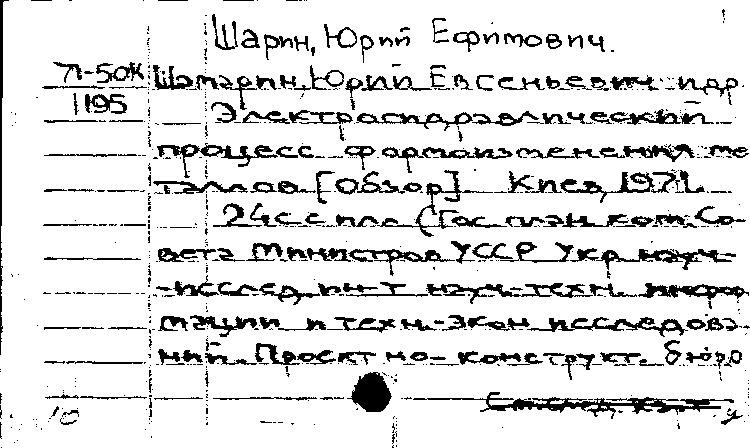 Шарин, Юрий Ефимович.
71-50К Шамарин, Юрий Евсеньевич и др
1195 Электрогидравлический
процесс формоизменения ме-
таллов [Обзор]. Киев, 1971.
24с с илл (Гос план. ком. Со-
вета Министров УССР Укр науч-
-исслед. ин-т науч.-техн. информ
мации и техн.-экон исследова-
ний. Проектно-конструкт. бюро
См след. карт.
10